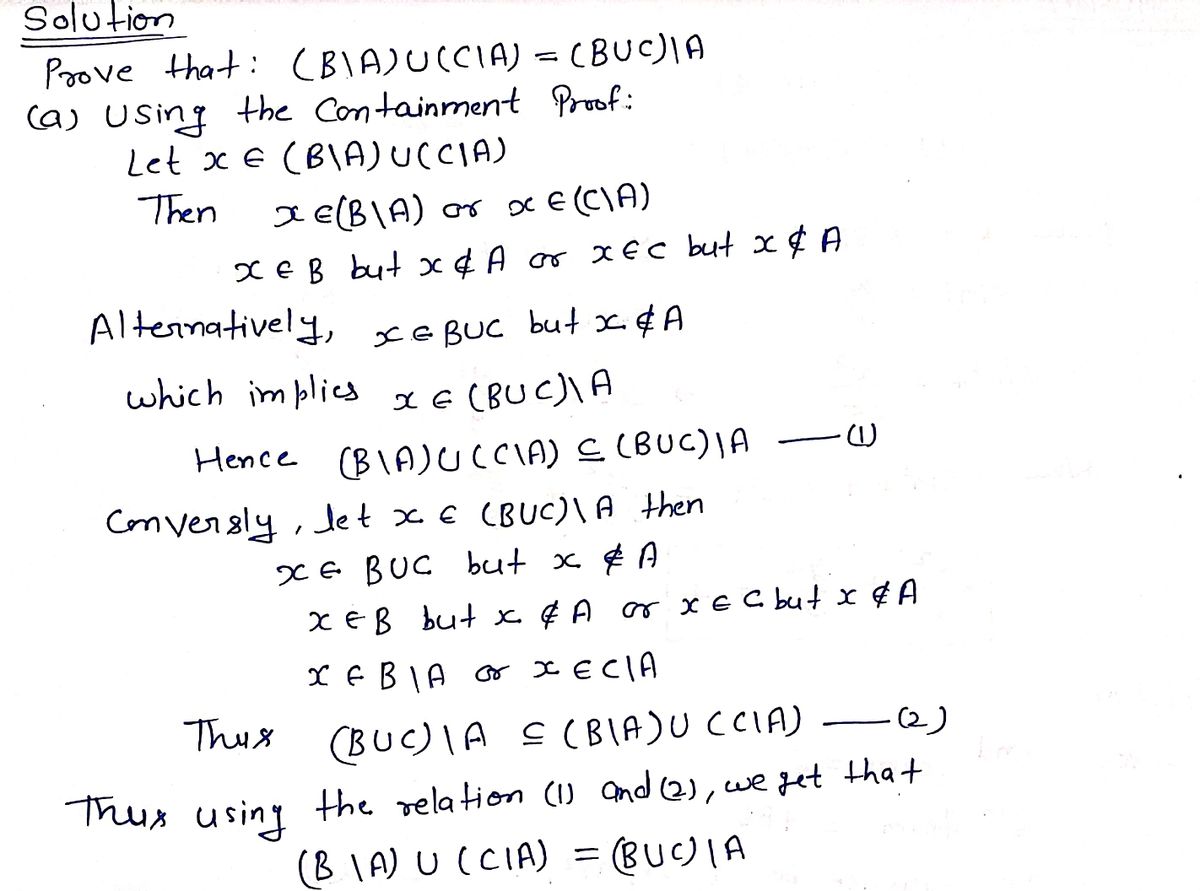 Solution
Prove that: (B\A)∪(C\A) = (B∪C)\A
(a) Using the Containment Proof:
Let x ∈ (B\A)∪(C\A)
Then x ∈(B\A) or x ∈(C\A)
x ∈ B but x ∉ A or x ∈ C but x ∉ A
Alternatively, x ∈ B∪C but x ∉ A
which implies x ∈ (B∪C)\A
Hence (B\A)∪(C\A) ⊆ (B∪C)\A —(1)
Conversly, let x ∈ (B∪C)\A then
x ∈ B∪C but x ∉ A
x ∈ B but x ∉ A or x ∈ C but x ∉ A
x ∈ B\A or x ∈ C\A
Thus (B∪C)\A ⊆ (B\A)∪(C\A) —(2)
Thus using the relation (1) and (2), we get that
(B\A) ∪ (C\A) = (B∪C)\A